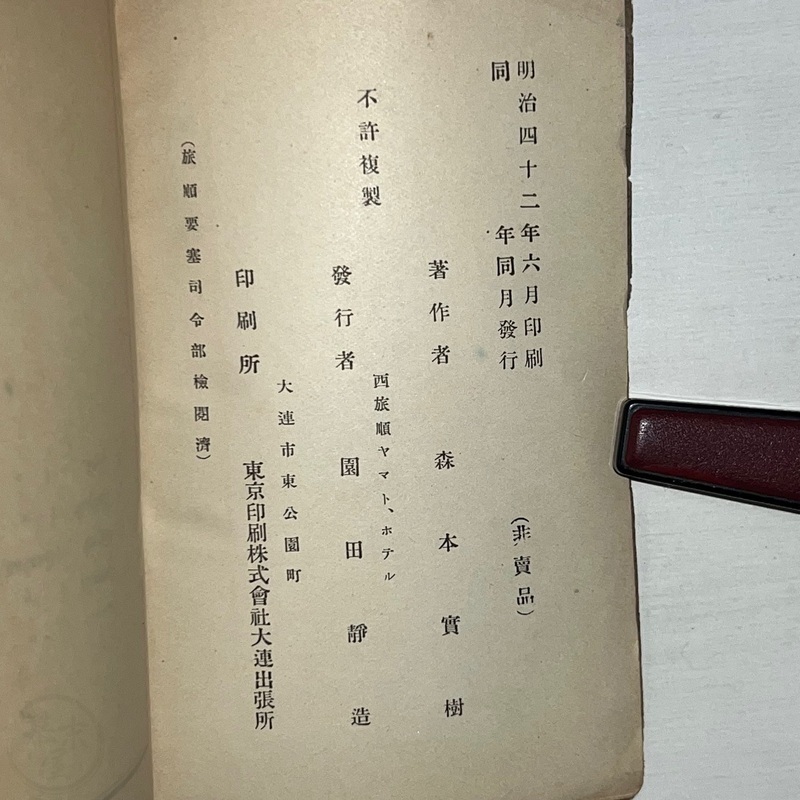 明治四十二年六月印刷
同年同月發行
(非賣品)
著作者 森本實樹
不許複製
西旅順ヤマト、ホテル
發行者 園田靜造
大連市東公園町
印刷所 東京印刷株式會社大連出張所
(旅順要塞司令部檢閱濟)